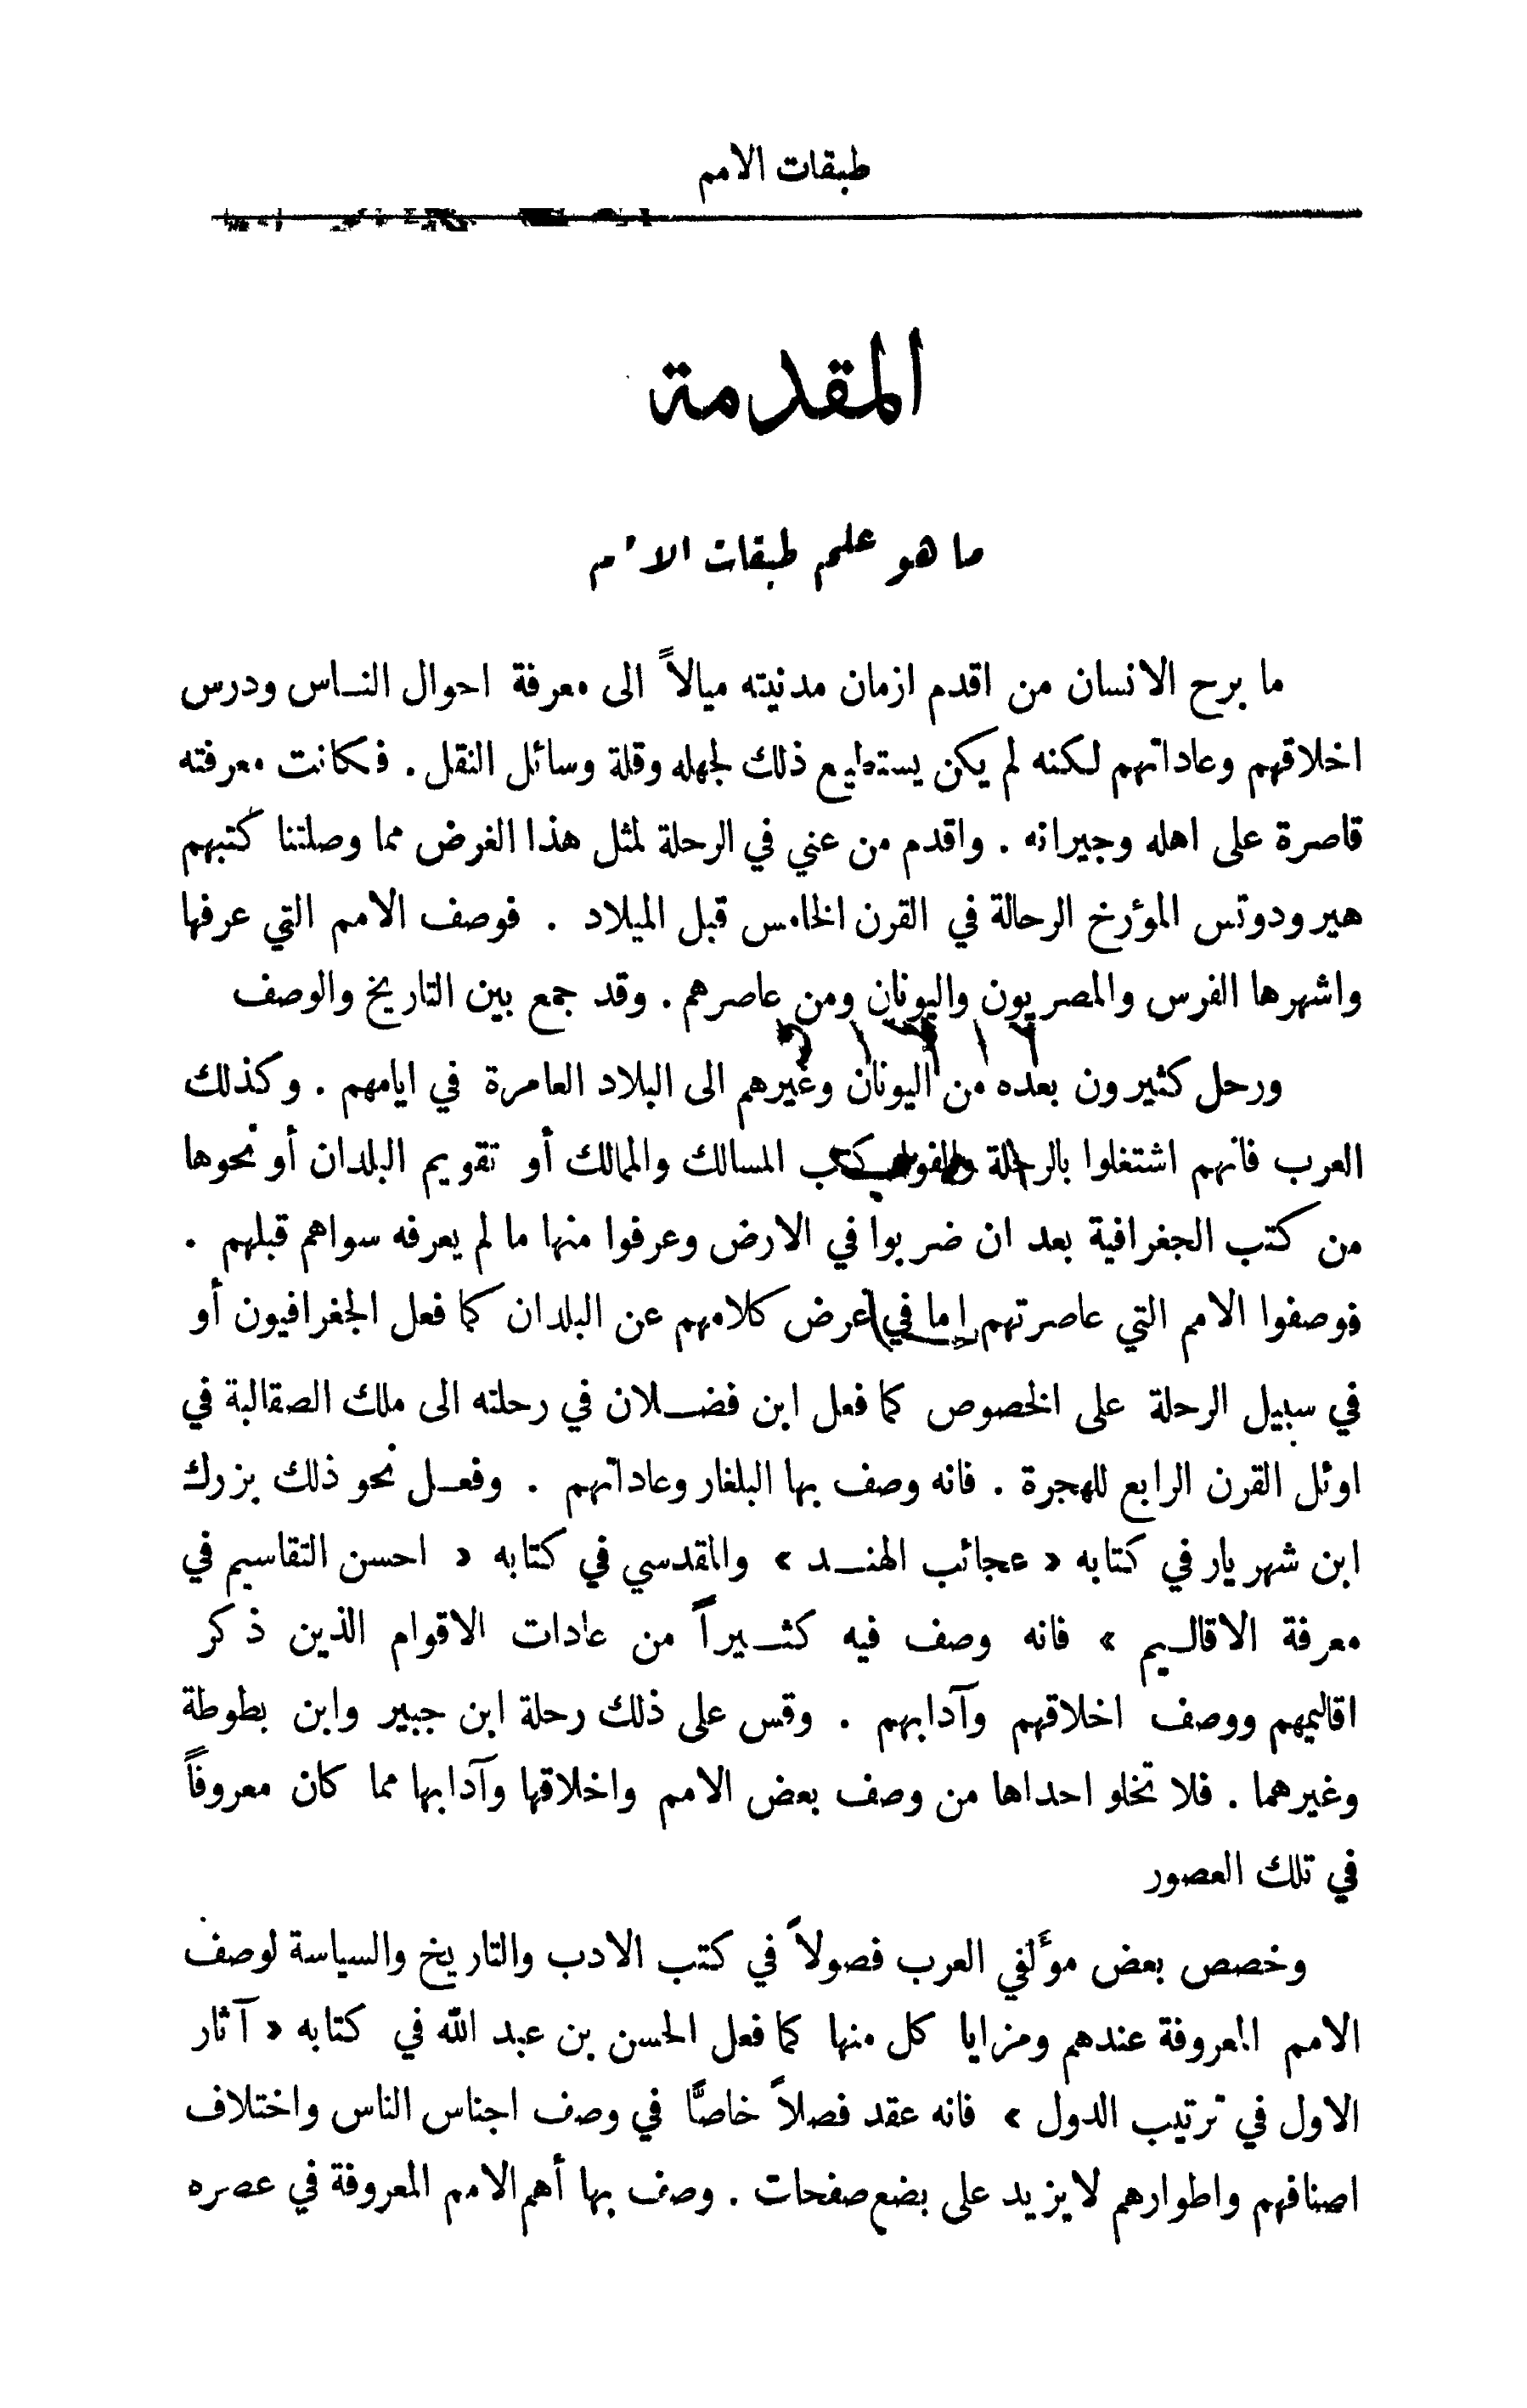 طبقات الامم
المقدمة
ما هو علم طبقات الامم
ما برح الانسان من اقدم ازمان مدنيته ميالاً الى معرفة احوال الناس ودرس
اخلاقهم وعاداتهم لكنه لم يكن يستطيع ذلك لجهله وقلة وسائل النقل . فكانت معرفته
قاصرة على اهله وجيرانه . واقدم من عني في الرحلة لمثل هذا الغرض مما وصلتنا كتبهم
هيرودوتس المؤرخ الرحالة في القرن الخامس قبل الميلاد . فوصف الامم التي عرفها
واشهرها الفرس والمصريون واليونان ومن عاصرهم . وقد جمع بين التاريخ والوصف
ورحل كثيرون بعده من اليونان وغيرهم الى البلاد العامرة في ايامهم . وكذلك
العرب فانهم اشتغلوا بالرحلة والفوا كتب المسالك والممالك أو تقويم البلدان أو نحوها
من كتب الجغرافية بعد ان ضربوا في الارض وعرفوا منها ما لم يعرفه سواهم قبلهم .
فوصفوا الامم التي عاصرتهم إما في عرض كلامهم عن البلدان كما فعل الجغرافيون أو
في سبيل الرحلة على الخصوص كما فعل ابن فضلان في رحلته الى ملك الصقالبة في
اوئل القرن الرابع للهجرة . فانه وصف بها البلغار وعاداتهم . وفعل نحو ذلك بزرك
ابن شهريار في كتابه « عجائب الهند » والمقدسي في كتابه « احسن التقاسيم في
معرفة الاقاليم » فانه وصف فيه كثيراً من عادات الاقوام الذين ذكر
اقاليمهم ووصف اخلاقهم وآدابهم . وقس على ذلك رحلة ابن جبير وابن بطوطة
وغيرهما . فلا تخلو احداها من وصف بعض الامم واخلاقها وآدابها مما كان معروفاً
في تلك العصور
وخصص بعض مؤلفي العرب فصولاً في كتب الادب والتاريخ والسياسة لوصف
الامم المعروفة عندهم ومزايا كل منها كما فعل الحسن بن عبد الله في كتابه « آثار
الاول في ترتيب الدول » فانه عقد فصلاً خاصًّا في وصف اجناس الناس واختلاف
اصنافهم واطوارهم لا يزيد على بضع صفحات . وصف بها أهم الامم المعروفة في عصره